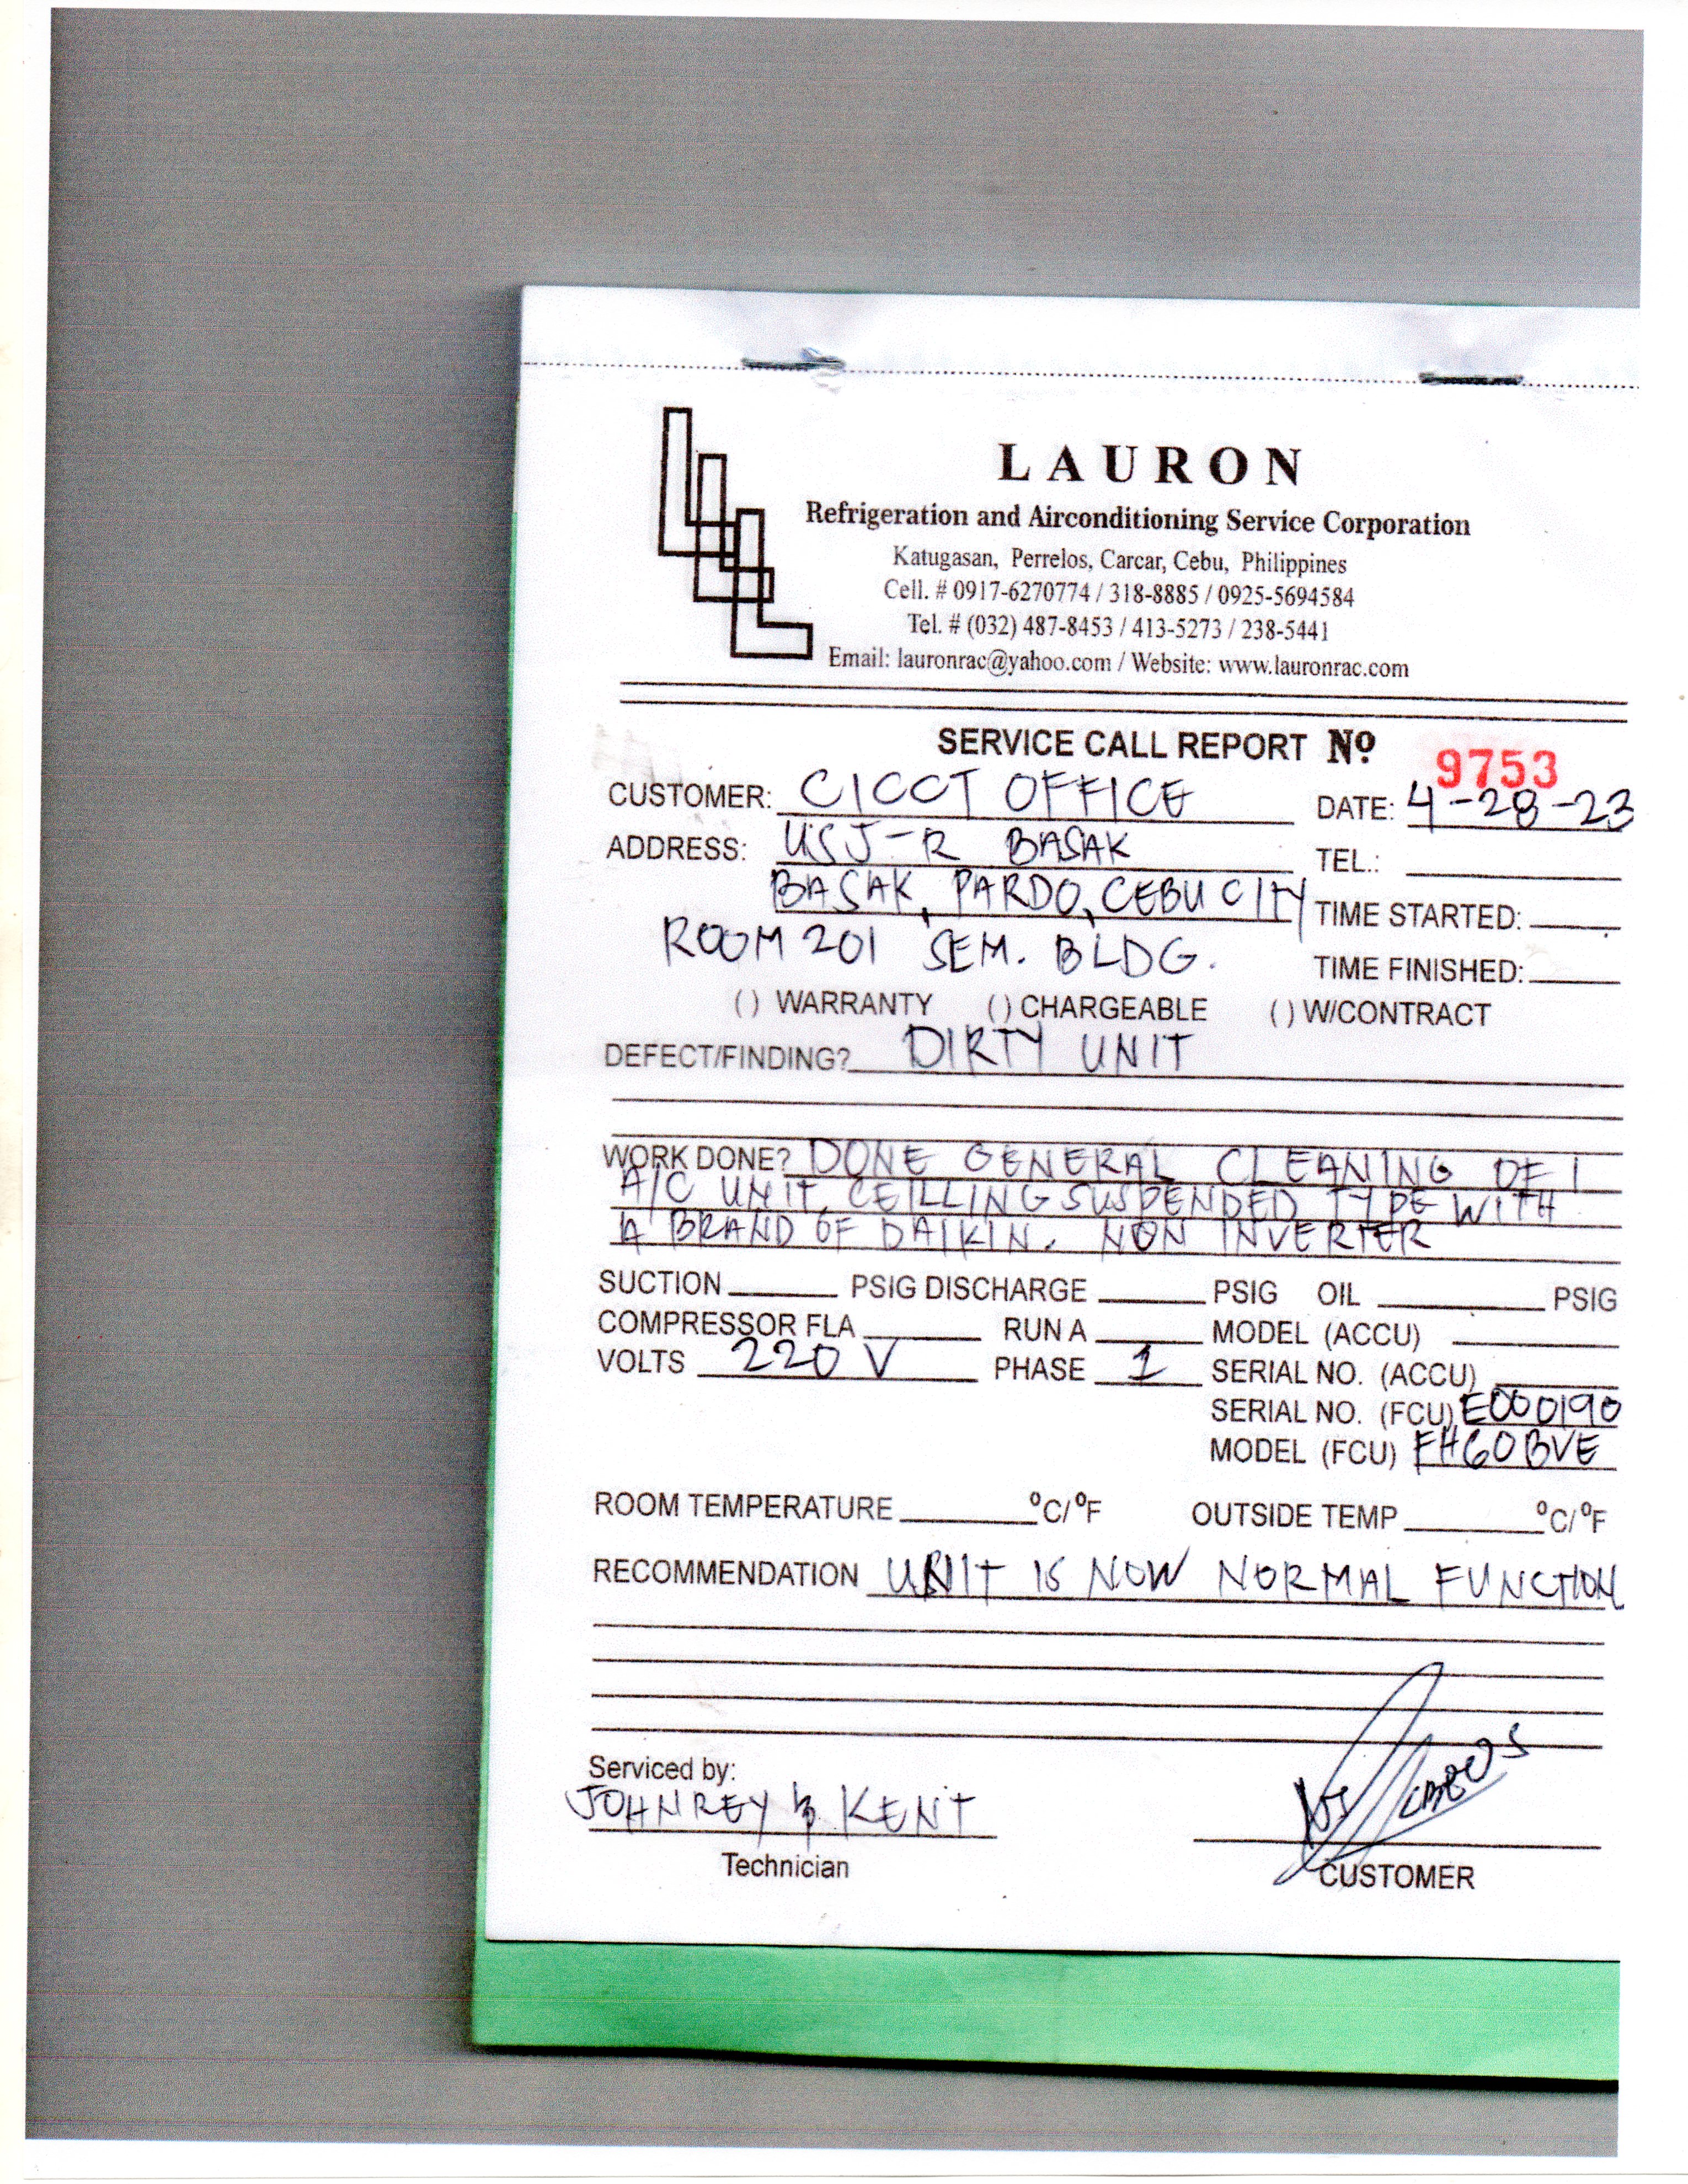 LAURON
Refrigeration and Airconditioning Service Corporation
Katugasan, Perrelos, Carcar, Cebu, Philippines
Cell. # 0917-6270774 / 318-8885 / 0925-5694584
Tel. # (032) 487-8453 / 413-5273 / 238-5441
Email: lauronrac@yahoo.com / Website: www.lauronrac.com
SERVICE CALL REPORT Nº 9753
CUSTOMER: CICCT OFFICE DATE: 4-28-23
ADDRESS: USJ-R BASAK TEL.:
BASAK, PARDO, CEBU CITY TIME STARTED:
ROOM 201 SEM. BLDG. TIME FINISHED:
( ) WARRANTY ( ) CHARGEABLE ( ) W/CONTRACT
DEFECT/FINDING? DIRTY UNIT
WORK DONE? DONE GENERAL CLEANING OF 1
A/C UNIT, CEILLING SUSPENDED TYPE WITH
A BRAND OF DAIKIN. NON INVERTER
SUCTION PSIG DISCHARGE PSIG OIL PSIG
COMPRESSOR FLA RUN A MODEL (ACCU)
VOLTS 220 V PHASE 1 SERIAL NO. (ACCU)
SERIAL NO. (FCU) E000190
MODEL (FCU) FH60BVE
ROOM TEMPERATURE ºC/ºF OUTSIDE TEMP ºC/ºF
RECOMMENDATION UNIT IS NOW NORMAL FUNCTION
Serviced by:
JOHNREY & KENT
Technician
CUSTOMER